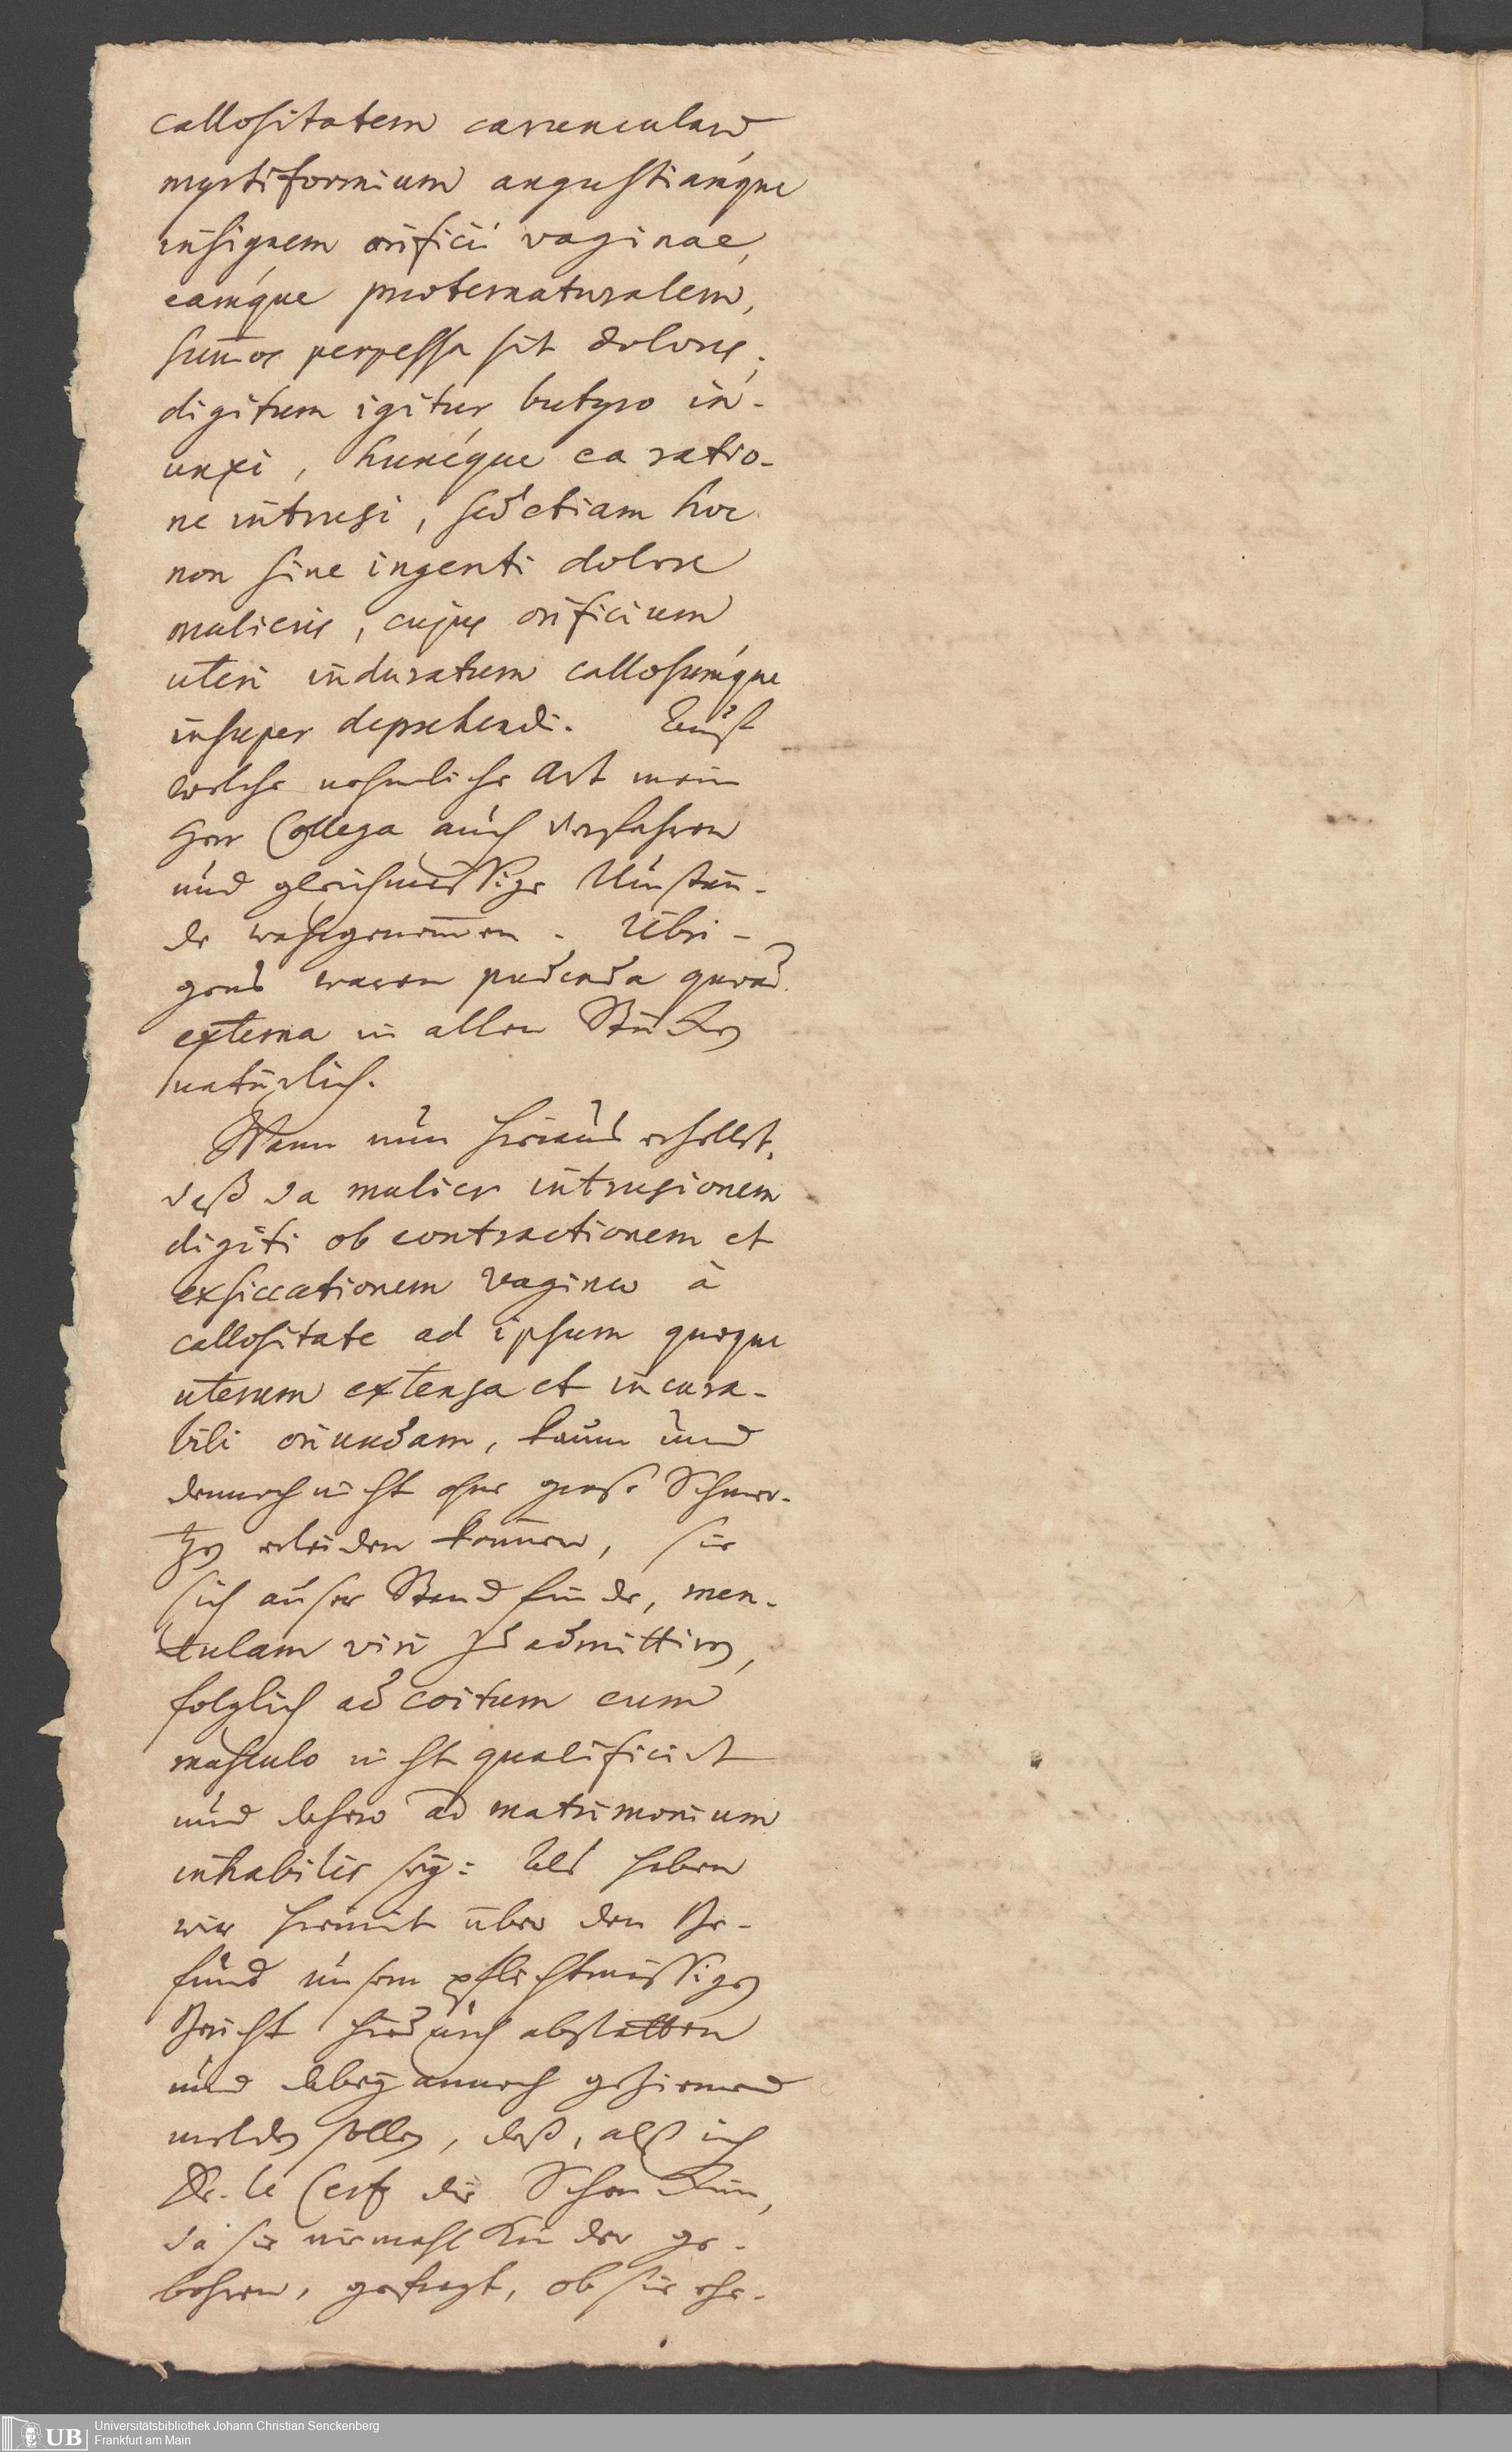 callositatem caruncularum
myrtiformium angustiamque
insignem orificii vaginae,
eamque praeternaturalem,
sum̄os perpessa sit dolores;
digitum igitur butyro in-
unxi, huncque ea ratio-
ne intrusi, sed etiam hoc
non sine ingenti dolore
mulieris, cujus orificium
uteri induratum callosumque
insuper deprehendi. Auf
welche nehmliche Art mein
Herr Collega auch verfahren
und gleichmässige Umstän-
de wahrgenom̄en. Übri-
gens waren pudenda quoad
externa in allen Stücken
natürlich.
Wann nun hieraus erhellet,
daß da mulier intrusionem
digiti ob contractionem et
exsiccationem vaginae à
callositate ad ipsum quoque
uterum extensa et incura-
bili oriundam, kaum und
dennoch nicht ohne große Schmer-
tzen erleiden können, sie
sich auser Stand finde, men-
tulam viri zu admittiren,
folglich ad coitum cum
masculo nicht qualificirt
und dahero ad matrimonium
inhabilis sey: Als haben
wir hiermit über den Be-
fund unsern pflichtmässigen
Bericht hierdurch abstatten
und dabey annoch geziemend
melden sollen, daß, alß ich
Dr. le Cerf die Schenckin,
da sie niemahl Kinder ge-
bohren, gefragt, ob sie ehe-
Universitätsbibliothek Johann Christian Senckenberg
Frankfurt am Main
UB